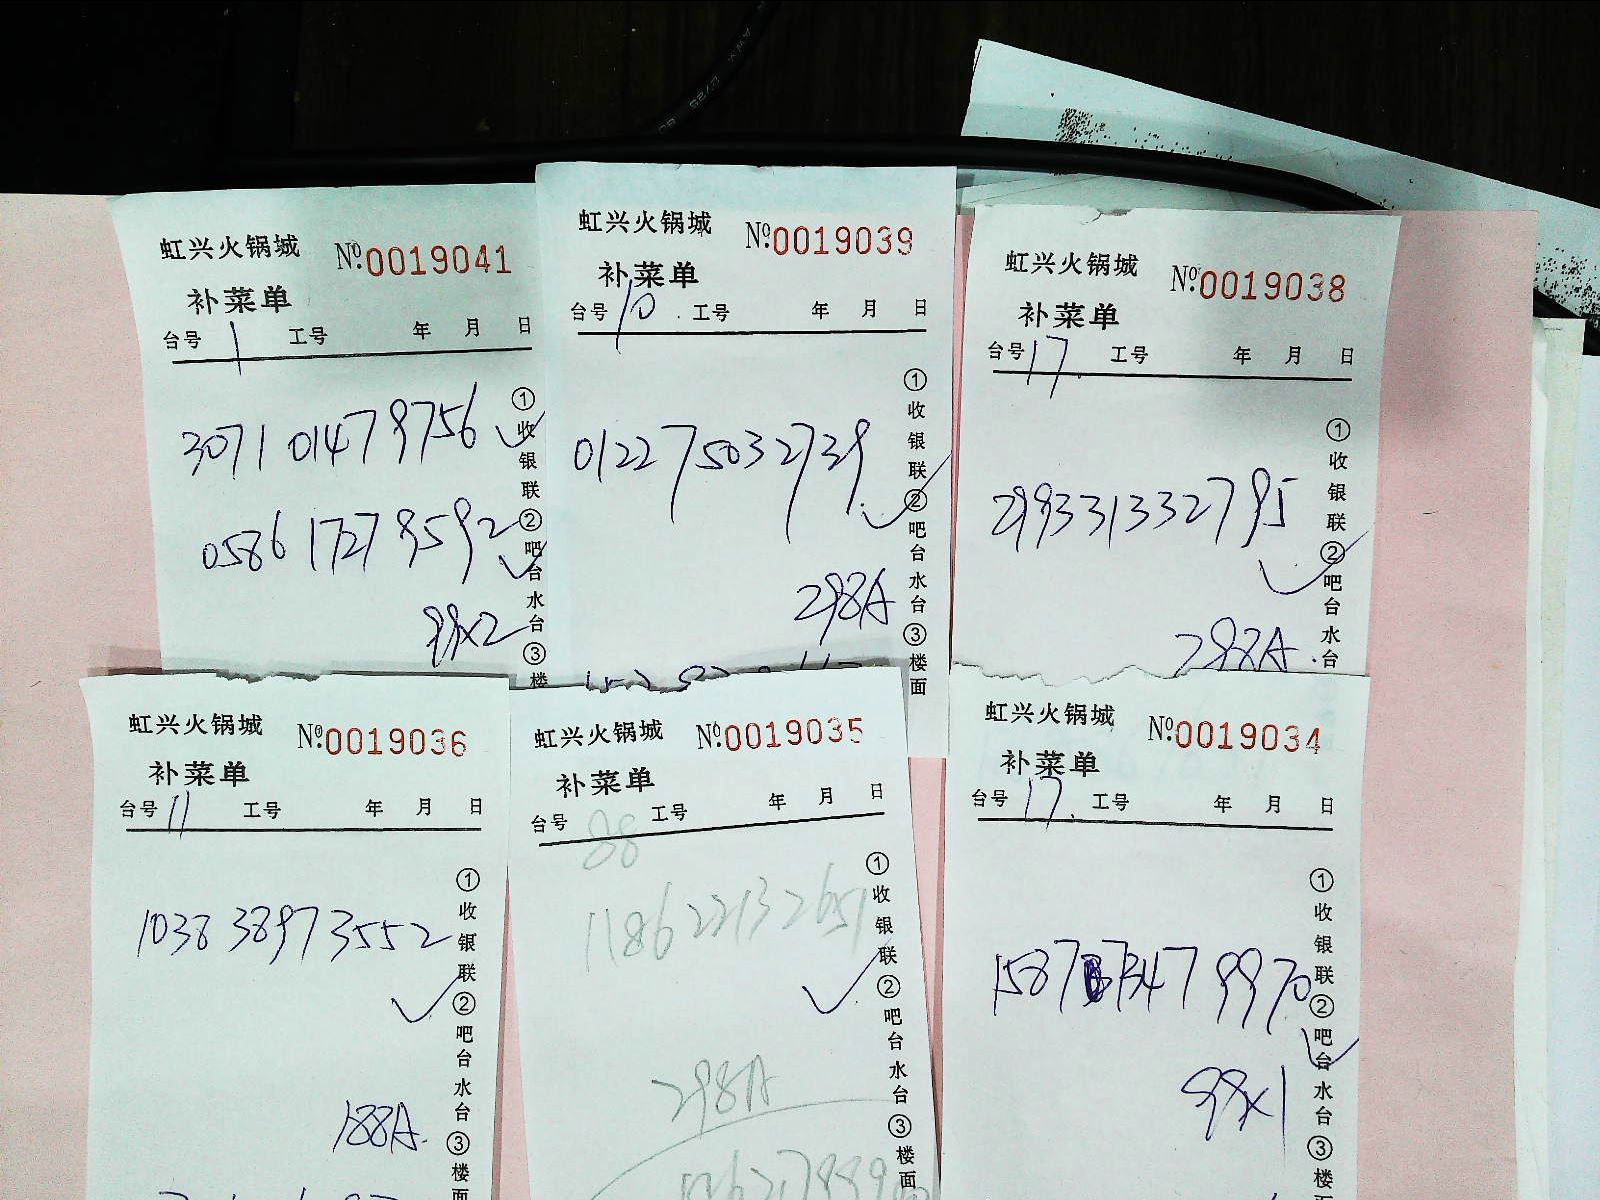 虹兴火锅城 №.0019041
补菜单
台号 1 工号 年 月 日
3071 0147 9756
0586 1727 9592
99x2
①收银联②吧台水台③楼
虹兴火锅城 №.0019039
补菜单
台号 10 工号 年 月 日
012275032739
298A
①收银联②吧台水台③楼面
虹兴火锅城 №.0019038
补菜单
台号 17. 工号 年 月 日
299331332795
298A.
①收银联②吧台水台
虹兴火锅城 №.0019036
补菜单
台号 11 工号 年 月 日
1038 3897 3552
188A.
①收银联②吧台水台③楼面
虹兴火锅城 №.0019035
补菜单
台号 88 工号 年 月 日
118622132651
298A
①收银联②吧台水台③楼面
虹兴火锅城 №.0019034
补菜单
台号 17. 工号 年 月 日
99x1
①收银联②吧台水台③楼